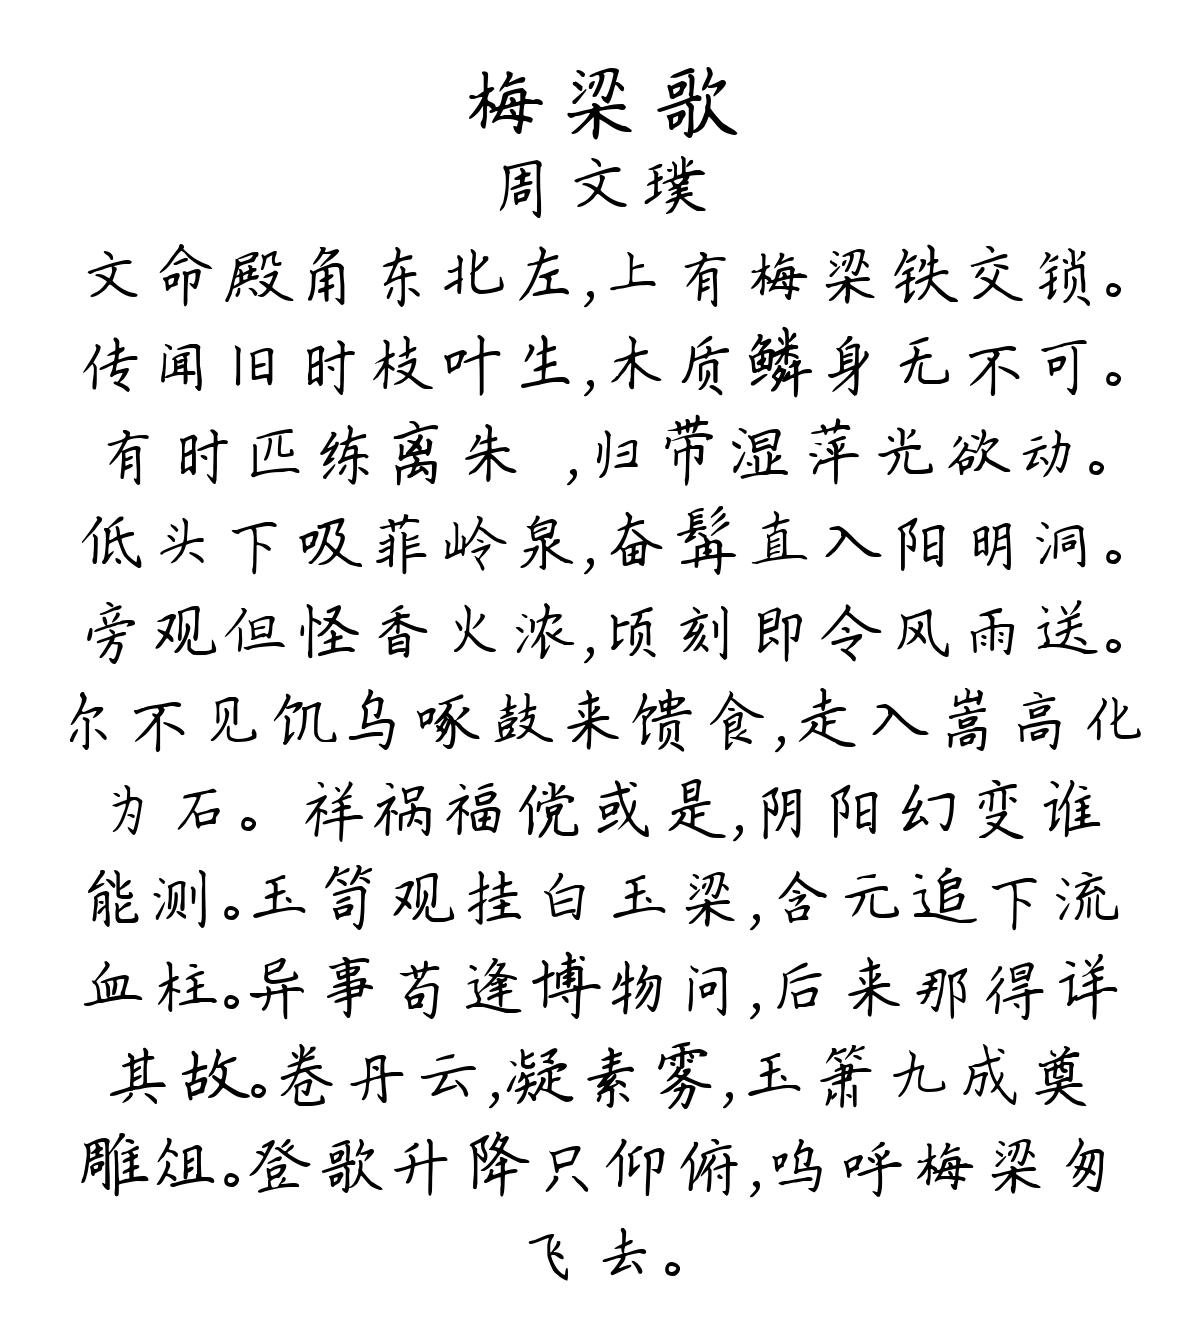 梅梁歌
周文璞
文命殿角东北左,上有梅梁铁交锁。
传闻旧时枝叶生,木质鳞身无不可。
有时匹练离朱 ,归带湿萍光欲动。
低头下吸菲岭泉,奋髯直入阳明洞。
旁观但怪香火浓,顷刻即令风雨送。
尔不见饥乌啄鼓来馈食,走入嵩高化
为石。祥祸福傥或是,阴阳幻变谁
能测。玉笥观挂白玉梁,含元追下流
血柱。异事苟逢博物问,后来那得详
其故。卷丹云,凝素雾,玉箫九成奠
雕俎。登歌升降只仰俯,呜呼梅梁匆
飞去。